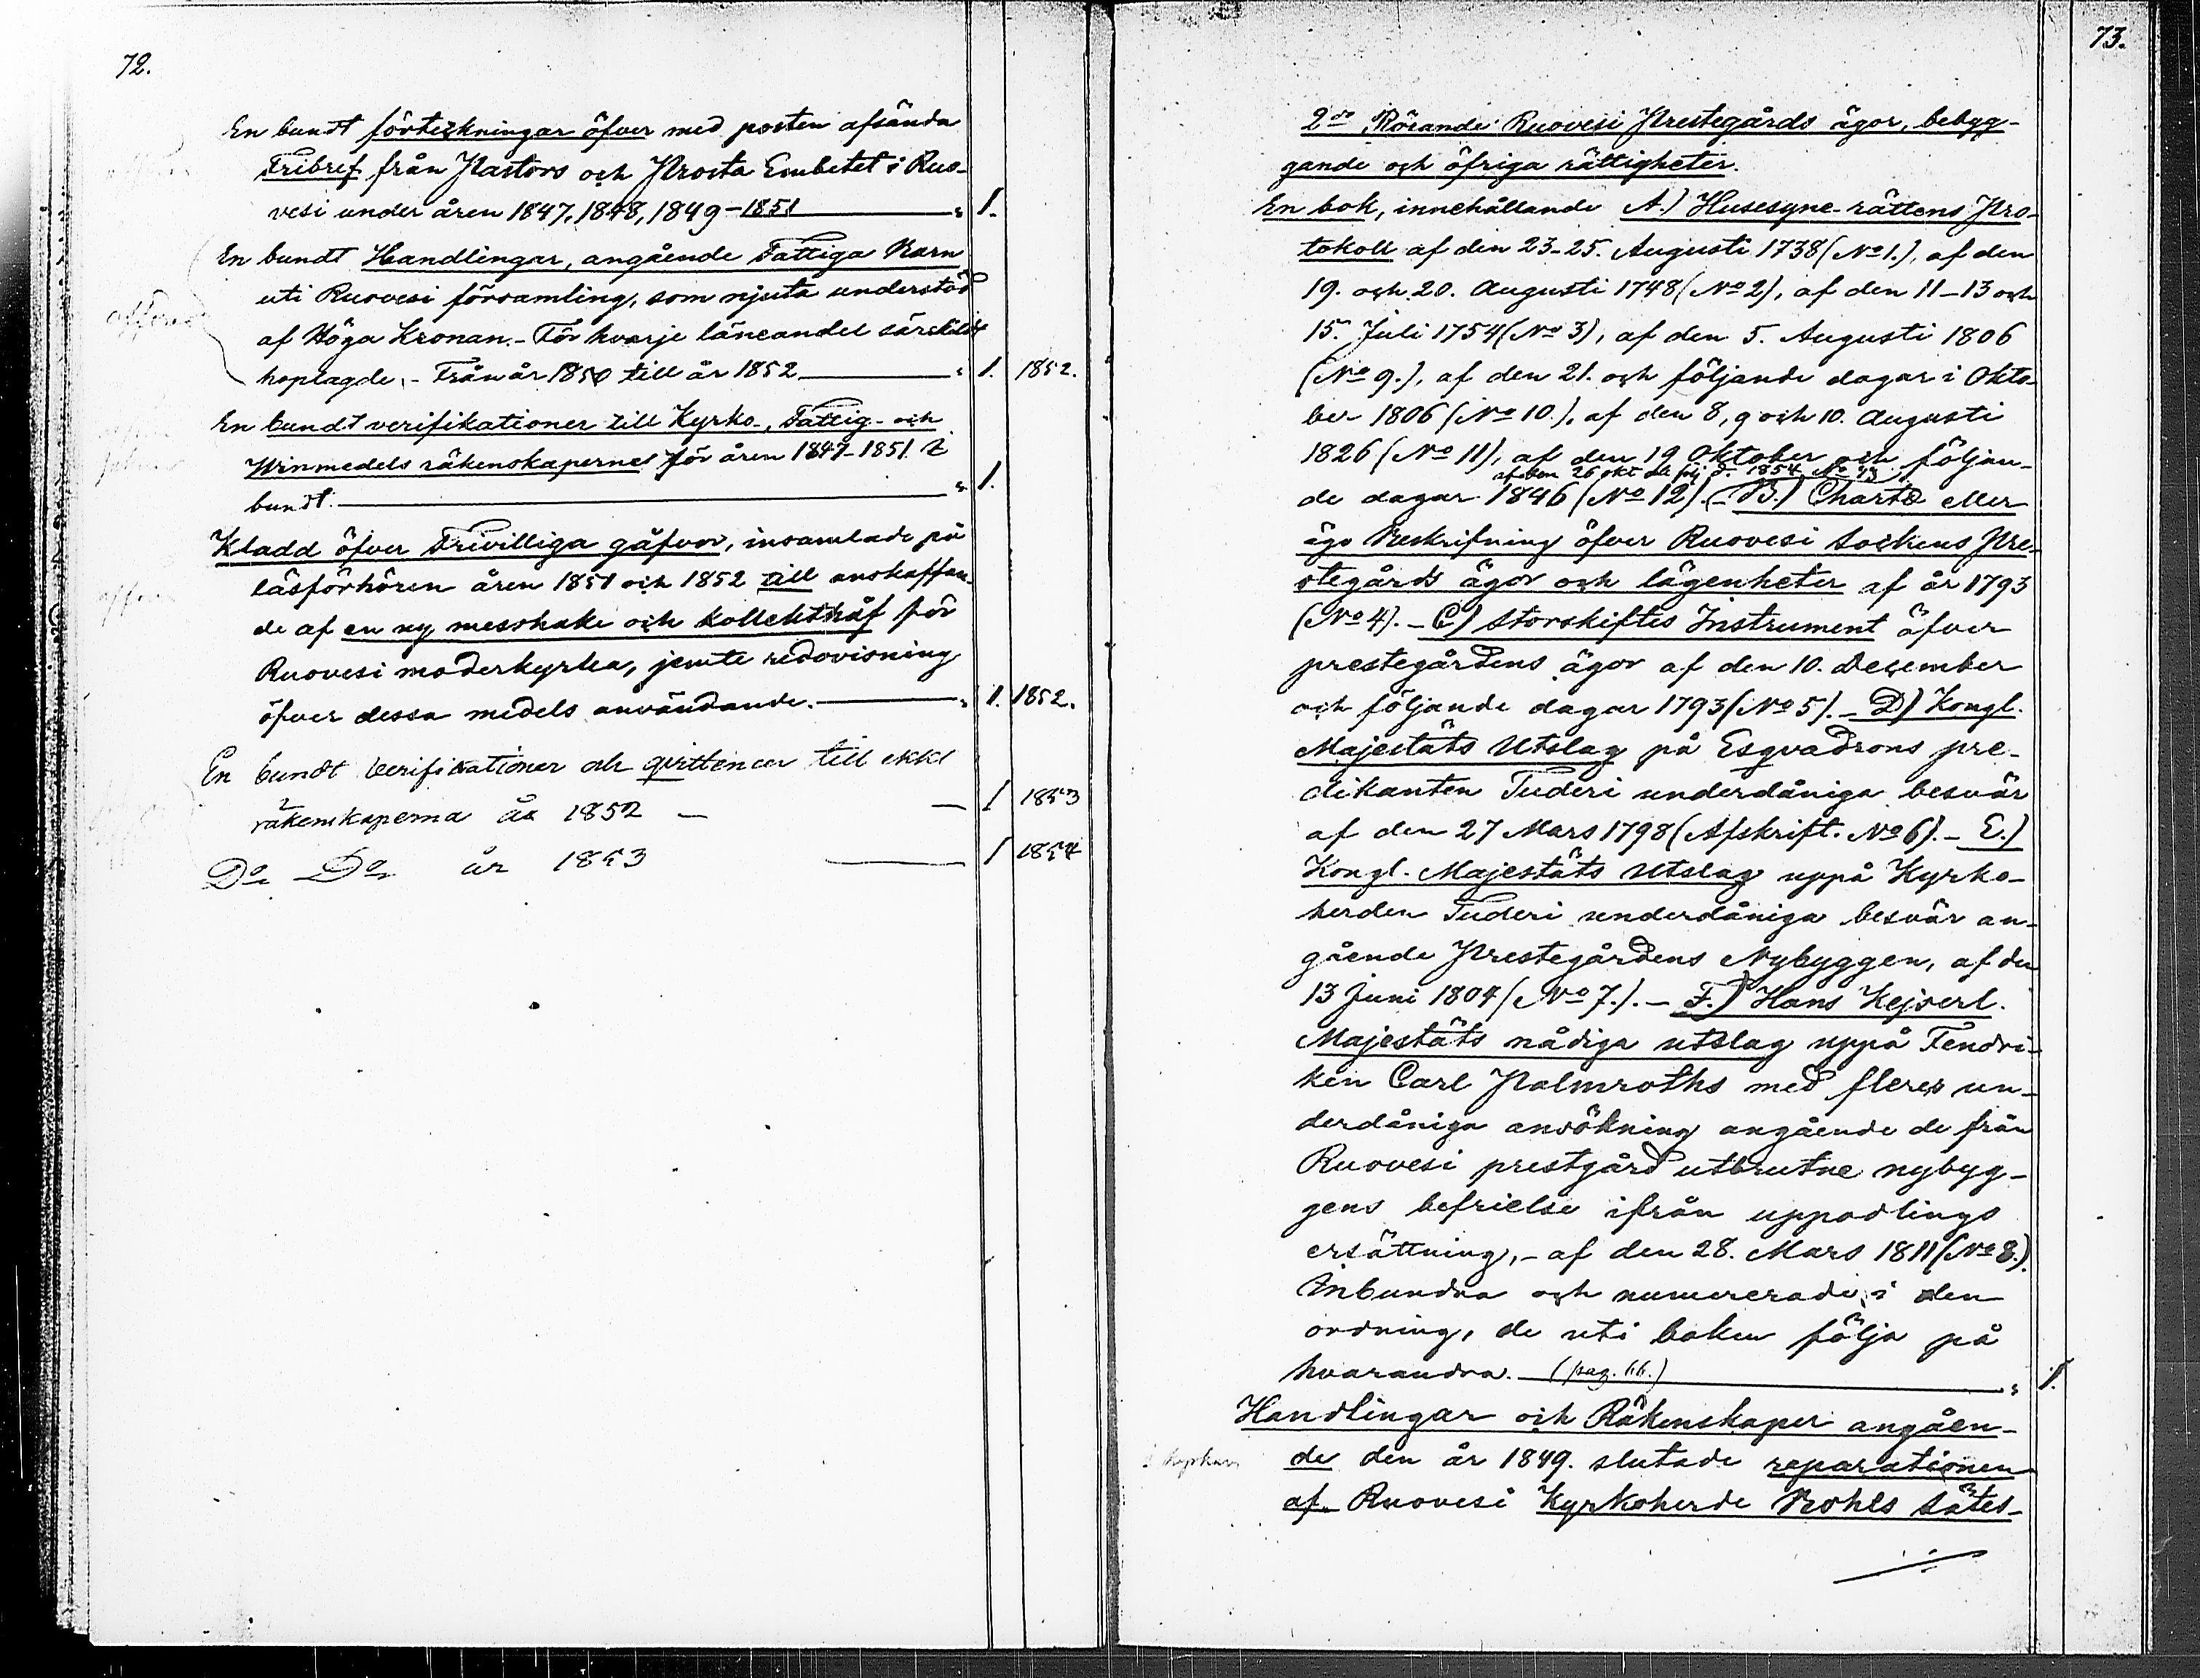 72.
En bundt förteckningar öfver med posten afsända
Fribref från Pastors och Prosta Embetet i Ruo-
vesi under åren 1847, 1848, 1849-1851 " 1.
En bundt Handlingar, angående Fattiga Barn
uti Ruovesi församling, som njuta understöd
af Höga Kronan.- För hvarje läneandel särskildt
hoplagde. - Från år 1850 till år 1852 " 1. 1852.
En bundt verifikationer till Kyrko-, Fattig- och
Winmedels räkenskaperne för åren 1847-1851. i
bundt. " 1.
Kladd öfver Frivilliga gåfvor, insamlade på
läsförhören åren 1851 och 1852 till anskaffan-
de af en ny messhake och kollekthåf för
Ruovesi moderkyrka, jemte redovisning
öfver dessa medels användande. " 1. 1852.
En bundt verifikationer och qvittencer till ekkl
räkenskaperna år 1852 — — 1 1853
Do Do år 1853 — 1 1854
73.
2do Rörande Ruovesi Prestegårds ägor, bebyg-
gande och öfriga rättigheter.
En bok, innehållande A.) Husesyne-rättens Pro-
tokoll af den 23-25. Augusti 1738 (No 1.), af den
19. och 20. Augusti 1748 (No 2), af den 11-13 och
15. Juli 1754 (No 3), af den 5. Augusti 1806
(No 9.), af den 21. och följande dagar i Okto-
ber 1806 (No 10.), af den 8, 9 och 10. Augusti
1826 (No 11), af den 19 Oktober och följan-
af den 26 okt o. följ. d. 1854 No 13
de dagar 1846 (No 12). - B.) Charta eller
ägo Beskrifning öfver Ruovesi Sockens Pre-
stegårds ägor och lägenheter af år 1793
(No 4). - C) Storskiftes Instrument öfver
prestegårdens ägor af den 10. December
och följande dagar 1793 (No 5). - D) Kongl.
Majestäts Utslag på Esqvadrons pre-
dikanten Tuderi underdåniga besvär
af den 27 Mars 1798 (Afskrift. No 6). - E.)
Kongl. Majestäts Utslag uppå Kyrko-
herden Tuderi underdåniga besvär an-
gående Prestegårdens Nybyggen, af den
13 Juni 1804 (No 7.). - F.) Hans Kejserl.
Majestäts nådiga utslag uppå Fendri-
ken Carl Palmroths med fleres un-
derdåniga ansökning angående de från
Ruovesi prestgård utbrutne nybyg-
gens befrielse ifrån uppodlings
ersättning, - af den 28. Mars 1811 (No 8.).
Inbundna och numererade, i den
ordning, de uti boken följa på
hvarandra. (pag. 66.) " 1.
Handlingar och Räkenskaper angåen-
de den år 1849. slutade reparationen
af Ruovesi Kyrkoherde Bohls sätes-